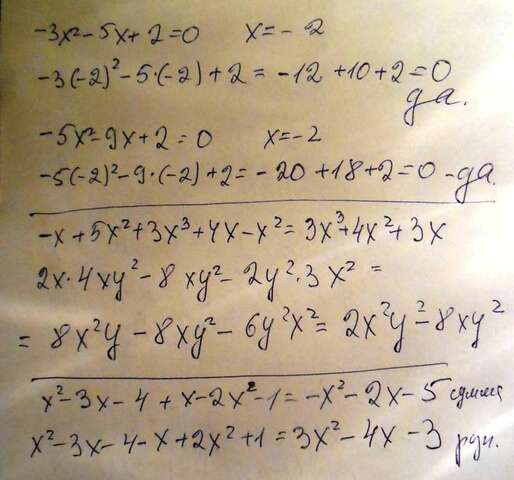 -3x²-5x+2=0 x=-2
-3(-2)²-5·(-2)+2=-12+10+2=0
да.
-5x²-9x+2=0 x=-2
-5(-2)²-9·(-2)+2=-20+18+2=0-да.
-x+5x²+3x³+4x-x²=3x³+4x²+3x
2x·4xy²-8xy²-2y²·3x²=
=8x²y-8xy²-6y²x²=2x²y²-8xy²
x²-3x-4+x-2x²-1=-x²-2x-5 сумма
x²-3x-4-x+2x²+1=3x²-4x-3